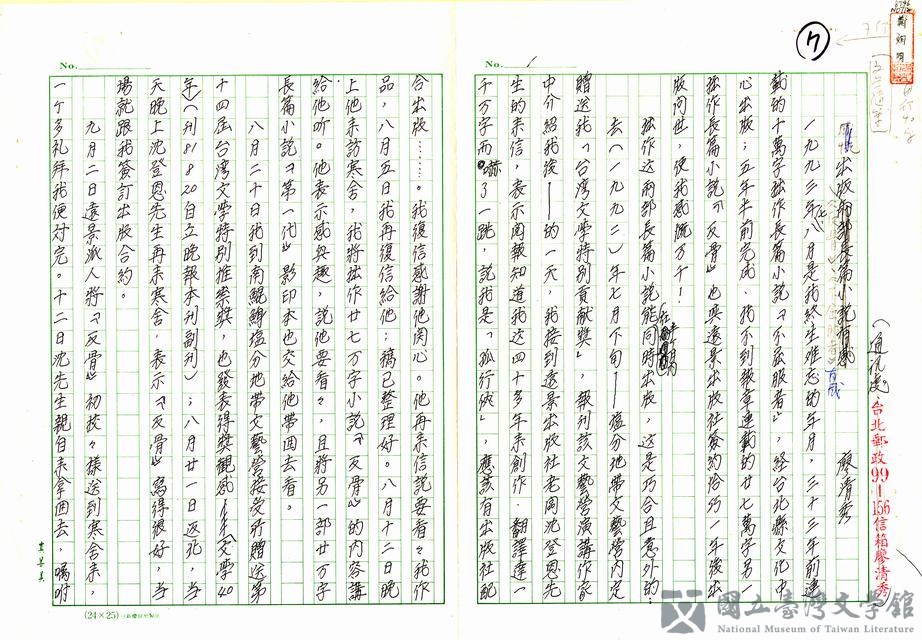 7
No. 1
(通訊處 台北郵政99-156信箱廖清秀)
出版兩部長篇小說有感 廖清秀
一九九三年八月是我終生難忘的年月,三十三年前連
載的十萬字拙作長篇小說『不屈服者』,經台北縣文化中
心出版;五年半前完成、找不到報章連載的廿七萬字另一
拙作長篇小說『反骨』也與遠景出版社簽約恰巧一年後出
版問世,使我感慨萬千!
拙作這兩部長篇小說能同時出版,這是巧合且意外的:
去(一九九二)年七月下旬——鹽分地帶文藝營內定
贈送我「台灣文學特別貢獻獎」,報刊該文藝營演講作家
中介紹我後——的一天,我接到遠景出版社老闆沈登恩先
生的來信,表示閱報知道我這四十多年來創作、翻譯達一
千万字而嚇了一跳,說我是「孤行俠」,應該有出版社配
No.
合出版……。我復信感謝他関心。他再來信說要看々我作
品,八月五日我再復信給他:稿已整理好。八月十二日晚
上他來訪寒舍,我將拙作廿七万字小說『反骨』的內容講
給他听。他表示感興趣,說他要看々,且將另一部廿万字
長篇小說『第一代』影印本也交給他帶回去看。
八月二十日我到南鯤鯓塩分地帶文藝營接受所贈送第
十四屆台湾文學特別推崇獎,也發表得獎觀感——文學40
年(刊81 8 20自立晚報本刊副刊);八月廿一日返北,当
天晚上沈登恩先生再來寒舍,表示『反骨』寫得很好,当
場就跟我簽訂出版合約。
九月二日遠景派人將『反骨』初校々樣送到寒舍來,
一个多礼拜我便対完。十二日沈先生親自來拿回去,囑咐
(24×25)
國立臺灣文學館
National Museum of Taiwan Literature